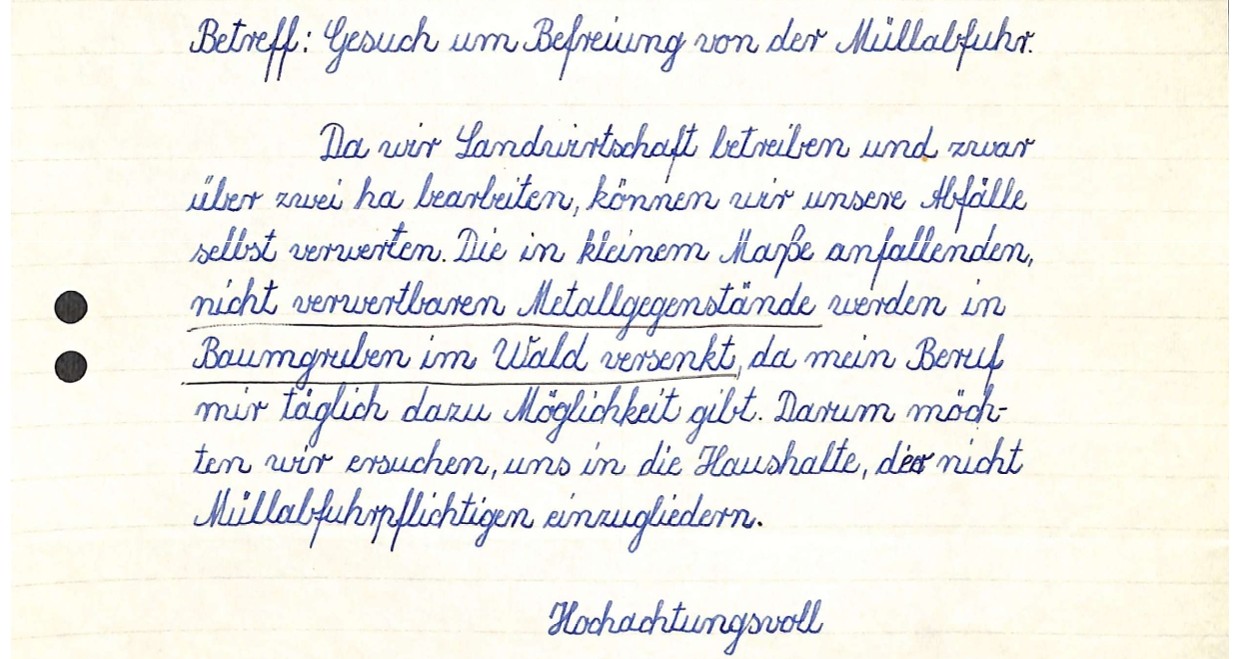 Betreff: Gesuch um Befreiung von der Müllabfuhr.
Da wir Landwirtschaft betreiben und zwar
über zwei ha bearbeiten, können wir unsere Abfälle
selbst verwerten. Die in kleinem Maße anfallenden,
nicht verwertbaren Metallgegenstände werden in
Baumgruben im Wald versenkt, da mein Beruf
mir täglich dazu Möglichkeit gibt. Darum möch-
ten wir ersuchen, uns in die Haushalte, der nicht
Müllabfuhrpflichtigen einzugliedern.
Hochachtungsvoll